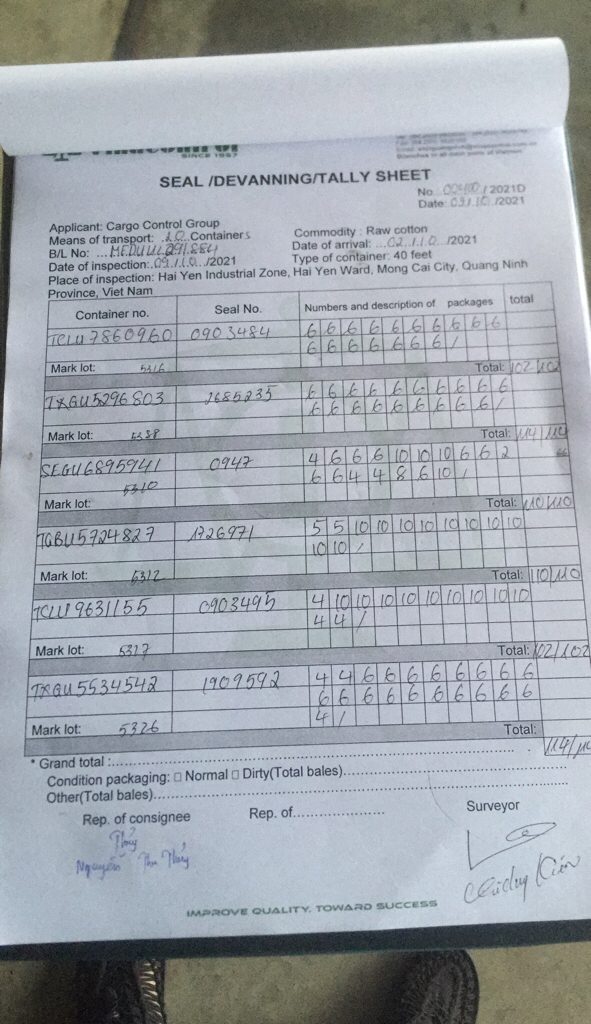 SINCE 1957
SEAL /DEVANNING/TALLY SHEET
No /2021D
Date: 09.1.10. /2021
Applicant: Cargo Control Group
Means of transport: 10 Containers
Commodity : Raw cotton
B/L No:
Date of arrival: 02.1.10 /2021
Date of inspection: 09.1.10 /2021
Type of container: 40 feet
Place of inspection: Hai Yen Industrial Zone, Hai Yen Ward, Mong Cai City, Quang Ninh
Province, Viet Nam
Container no. Seal No. Numbers and description of packages total
TCLU 7860960 0903484 6 6 6 6 6 6 6 6 6 6
6 6 6 6 6 6 6 /
Mark lot: 5316 Total: 102/102
TXGU5296803 6 6 6 6 6 6 6 6 6 6
6 6 6 6 6 6 6 6 6 /
Mark lot: Total: 114/114
SEGU6895941 0947 4 6 6 6 10 10 10 6 6 2
6 6 4 4 8 6 10 /
Mark lot: 5310 Total: 110/110
TGBU5724827 1726971 5 5 10 10 10 10 10 10 10 10
10 10 /
Mark lot: 5312 Total: 110/110
TCLU 9631155 0903495 4 10 10 10 10 10 10 10 10 10
4 4 /
Mark lot: 5317 Total: 102/102
TXGU5534542 1909592 4 4 6 6 6 6 6 6 6 6
6 6 6 6 6 6 6 6 6 6
4 /
Mark lot: 5326 Total: 114/
* Grand total :
Condition packaging: □ Normal □ Dirty(Total bales)
Other(Total bales)
Rep. of consignee Rep. of Surveyor
Thủy
Nguyễn Thu Thủy
IMPROVE QUALITY. TOWARD SUCCESS